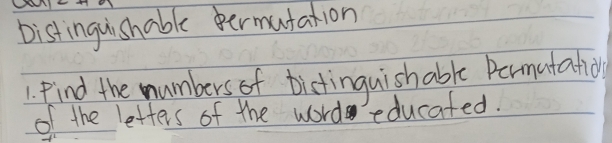 Distinguishable Permutation
1. Find the numbers of Distinguishable Permutation
of the letters of the word educated.